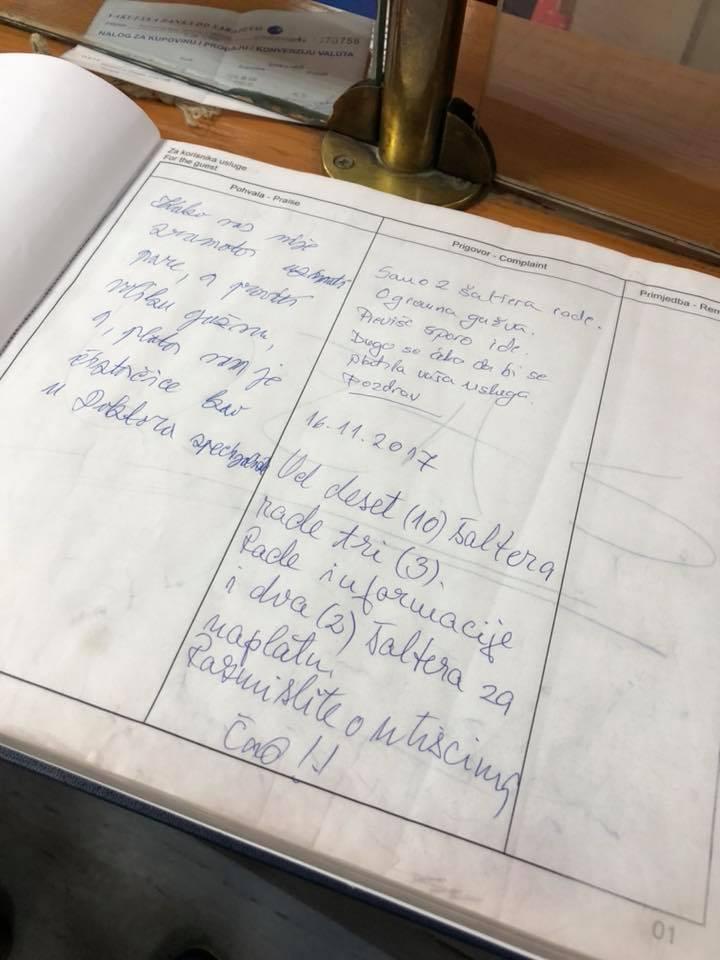 VAKUFSKA BANKA DD SARAJEVO
NALOG ZA KUPOVINU I PRODAJU / KONVERZIJU VALUTA
Za korisnika usluge
For the guest
Pohvala - Praise
Kako vas nije
sramota uzimati
pare, a praviti
toliku gužvu,
a, plata vam je
kao
u Doktora
Prigovor - Complaint
Samo 2 šaltera rade.
Ogromna gužva.
Previše sporo ide.
Dugo se čeka da bi se
platila vaša usluga.
Pozdrav
16.11.2017
Od deset (10) šaltera
rade tri (3).
Rade informacije
i dva (2) šaltera za
naplatu.
Razmislite o utiscima
Ćao !!
Primjedba - Rem
01